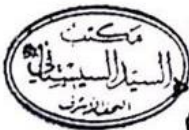 مكتب
السيد السيستاني
النجف الأشرف